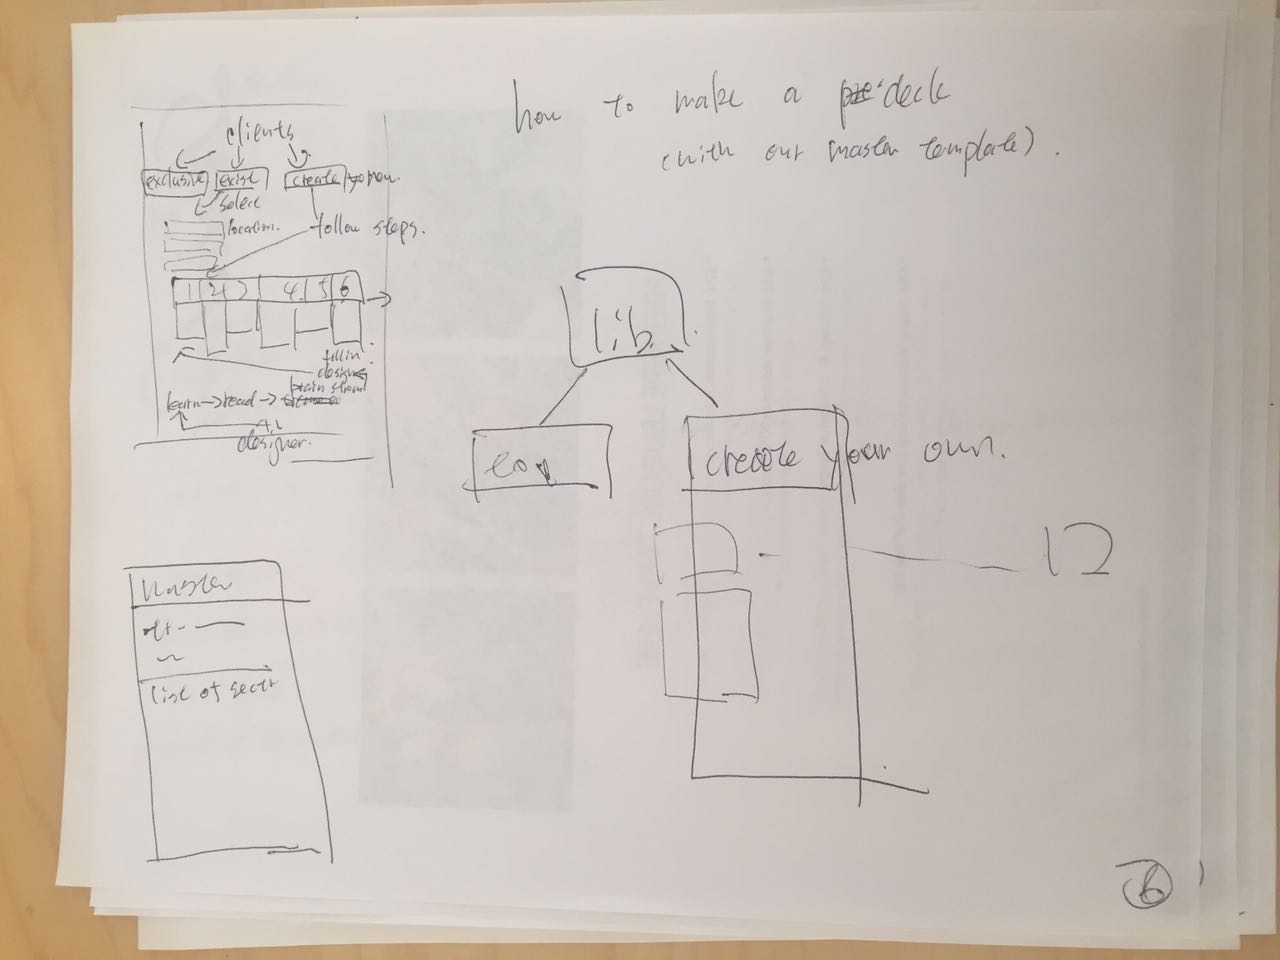 how to make a deck
(with our master template).
clients
exclusive exist create new.
select
location. follow steps.
1 2 3 4 5 6
fill in
design
brain storm
learn → read →
designer.
lib.
create your own.
12
Master
list of sect
6